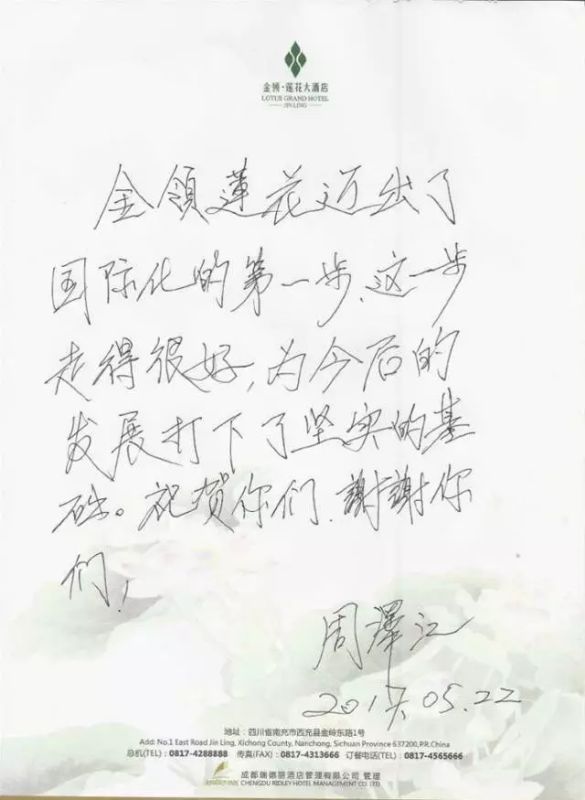 金领·莲花大酒店
LOTUS GRAND HOTEL
JIN LING
金領莲花迈出了
国际化的第一步、这一步
走得很好,为今后的
发展打下了坚实的基
础。祝贺你们、謝謝你
们!
周澤江
2017.05.22
地址:四川省南充市西充县金岭东路1号
Add: No.1 East Road Jin Ling, Xichong County, Nanchong, Sichuan Province 637200,P.R.China
总机(TEL):0817-4288888 传真(FAX):0817-4313666 订餐电话(TEL):0817-4565666
成都瑞德丽酒店管理有限公司 管理
CHENGDU RIDLEY HOTEL MANAGEMENT CO.LTD